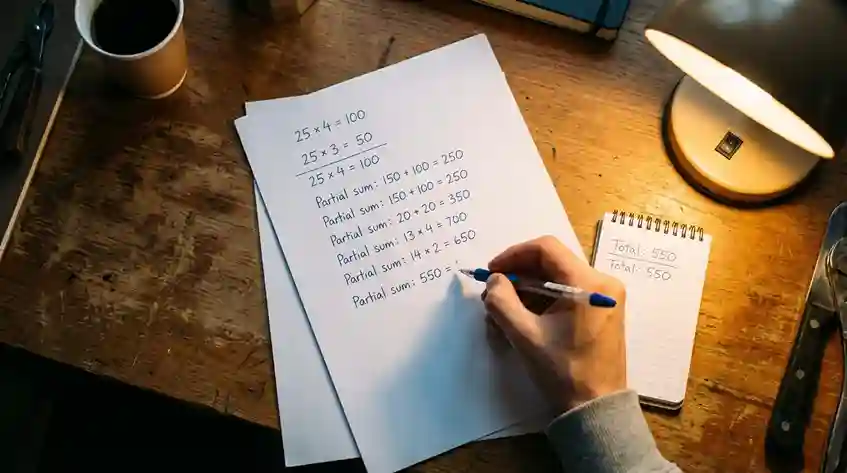 25 × 4 = 100
25 × 3 = 50
25 × 4 = 100
Partial sum: 150 + 100 = 250
Partial sum: 150 + 100 = 250
Partial sum: 20 + 20 = 350
Partial sum: 13 × 4 = 700
Partial sum: 14 × 2 = 650
Partial sum: 550 =
Total: 550
Total: 550